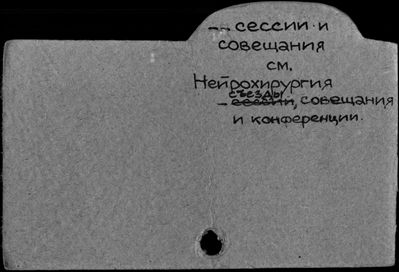 -- сессии и
совещания
см.
Нейрохирургия
съезды
- сессии, совещания
и конференции.